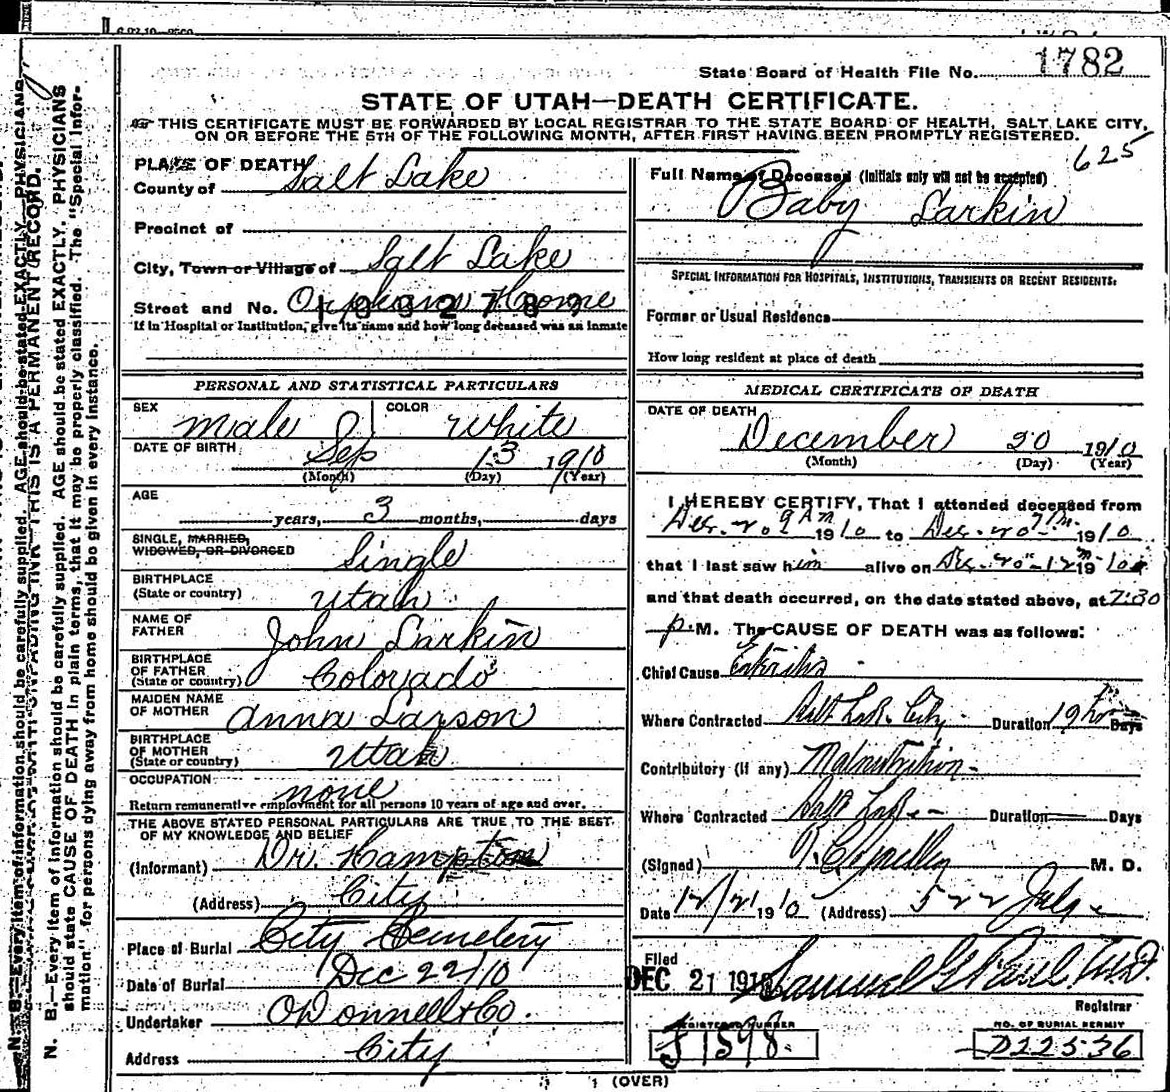 State Board of Health File No. 1782
STATE OF UTAH—DEATH CERTIFICATE.
THIS CERTIFICATE MUST BE FORWARDED BY LOCAL REGISTRAR TO THE STATE BOARD OF HEALTH, SALT LAKE CITY,
ON OR BEFORE THE 5TH OF THE FOLLOWING MONTH, AFTER FIRST HAVING BEEN PROMPTLY REGISTERED.
625
PLACE OF DEATH
County of Salt Lake
Precinct of
City, Town or Village of Salt Lake
Street and No. Orphans Home
If in Hospital or Institution, give its name and how long deceased was an inmate
PERSONAL AND STATISTICAL PARTICULARS
SEX male COLOR white
DATE OF BIRTH Sep 13 1910
(Month) (Day) (Year)
AGE
years, 3 months, days
SINGLE, MARRIED,
WIDOWED, OR DIVORCED Single
BIRTHPLACE
(State or country) Utah
NAME OF
FATHER John Larkin
BIRTHPLACE
OF FATHER
(State or country) Colorado
MAIDEN NAME
OF MOTHER Anna Larson
BIRTHPLACE
OF MOTHER
(State or country) Utah
OCCUPATION none
Return remunerative employment for all persons 10 years of age and over.
THE ABOVE STATED PERSONAL PARTICULARS ARE TRUE TO THE BEST
OF MY KNOWLEDGE AND BELIEF
(Informant) Dr. Hampton
(Address) City
Place of Burial City Cemetery
Date of Burial Dec 22/10
Undertaker O'Donnell & Co.
Address City
Full Name of Deceased (Initials only will not be accepted)
Baby Larkin
SPECIAL INFORMATION FOR HOSPITALS, INSTITUTIONS, TRANSIENTS OR RECENT RESIDENTS:
Former or Usual Residence
How long resident at place of death
MEDICAL CERTIFICATE OF DEATH
DATE OF DEATH
December 20 1910
(Month) (Day) (Year)
I HEREBY CERTIFY, That I attended deceased from
Dec. 20 9 AM 1910 to Dec. 20 1910
that I last saw him alive on Dec. 20 1910
and that death occurred, on the date stated above, at 7:30
p. M. The CAUSE OF DEATH was as follows:
Chief Cause
Where Contracted Salt Lake City Duration 19 hrs Days
Contributory (if any) Malnutrition
Where Contracted Salt Lake Duration Days
(Signed) M. D.
Date 12/21 1910 (Address) 522 Judge
Filed
DEC 21 1910 Samuel G. Paul M.D.
Registrar
REGISTERED NUMBER
J1598
NO. OF BURIAL PERMIT
D22536
(OVER)
N. B.—Every item of information should be carefully supplied. AGE should be stated EXACTLY. PHYSICIANS
should state CAUSE OF DEATH in plain terms, that it may be properly classified. The "Special Infor-
mation" for persons dying away from home should be given in every instance.
THIS IS A PERMANENT RECORD.